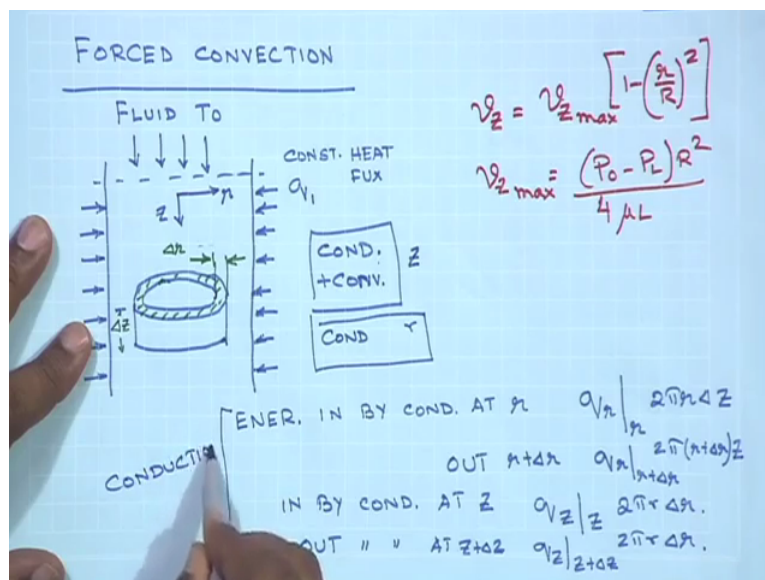 FORCED CONVECTION
FLUID TO
CONST. HEAT
FUX
q₁
z
r
Δr
ΔZ
COND.
+CONV.
Z
COND r
v_z = v_z max [1-(r/R)²]
v_z max = (P₀ - P_L)R² / 4μL
ENER. IN BY COND. AT r q_r|_r 2πrΔZ
OUT r+Δr q_r|_r+Δr 2π(r+Δr)Z
IN BY COND. AT Z q_z|_z 2πrΔr.
OUT " " AT Z+ΔZ q_z|_z+Δz 2πrΔr.